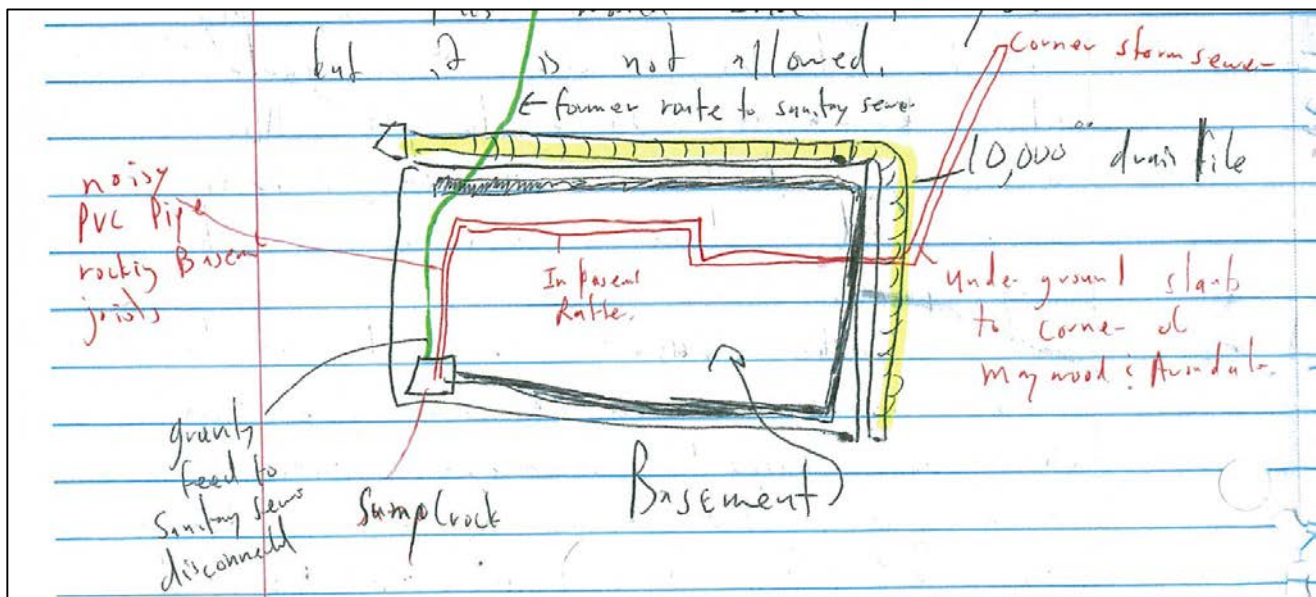 but it is not allowed.
Corner storm sewer
← former route to sanitary sewer
10,000⁰⁰ drain tile
noisy
PVC Pipe
rocking Basem
joists
In basem
Rafter
Underground slants
to corner of
Maywood & Avondale
gravity
feed to
Sanitary sewer
disconnected
Sump Crock
Basement